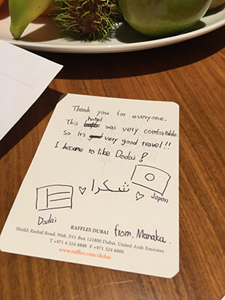 Thank you for everyone.
This hotel was very comfortable
So It's very good travel!!
I became to like Dodai!
شكرا
Japan
Dodai
from, Manaka.
RAFFLES DUBAI
Sheikh Rashid Road, Wafi, P.O. Box 121800 Dubai, United Arab Emirates
T +971 4 324 8888 F +971 324 6000
www.raffles.com/dubai